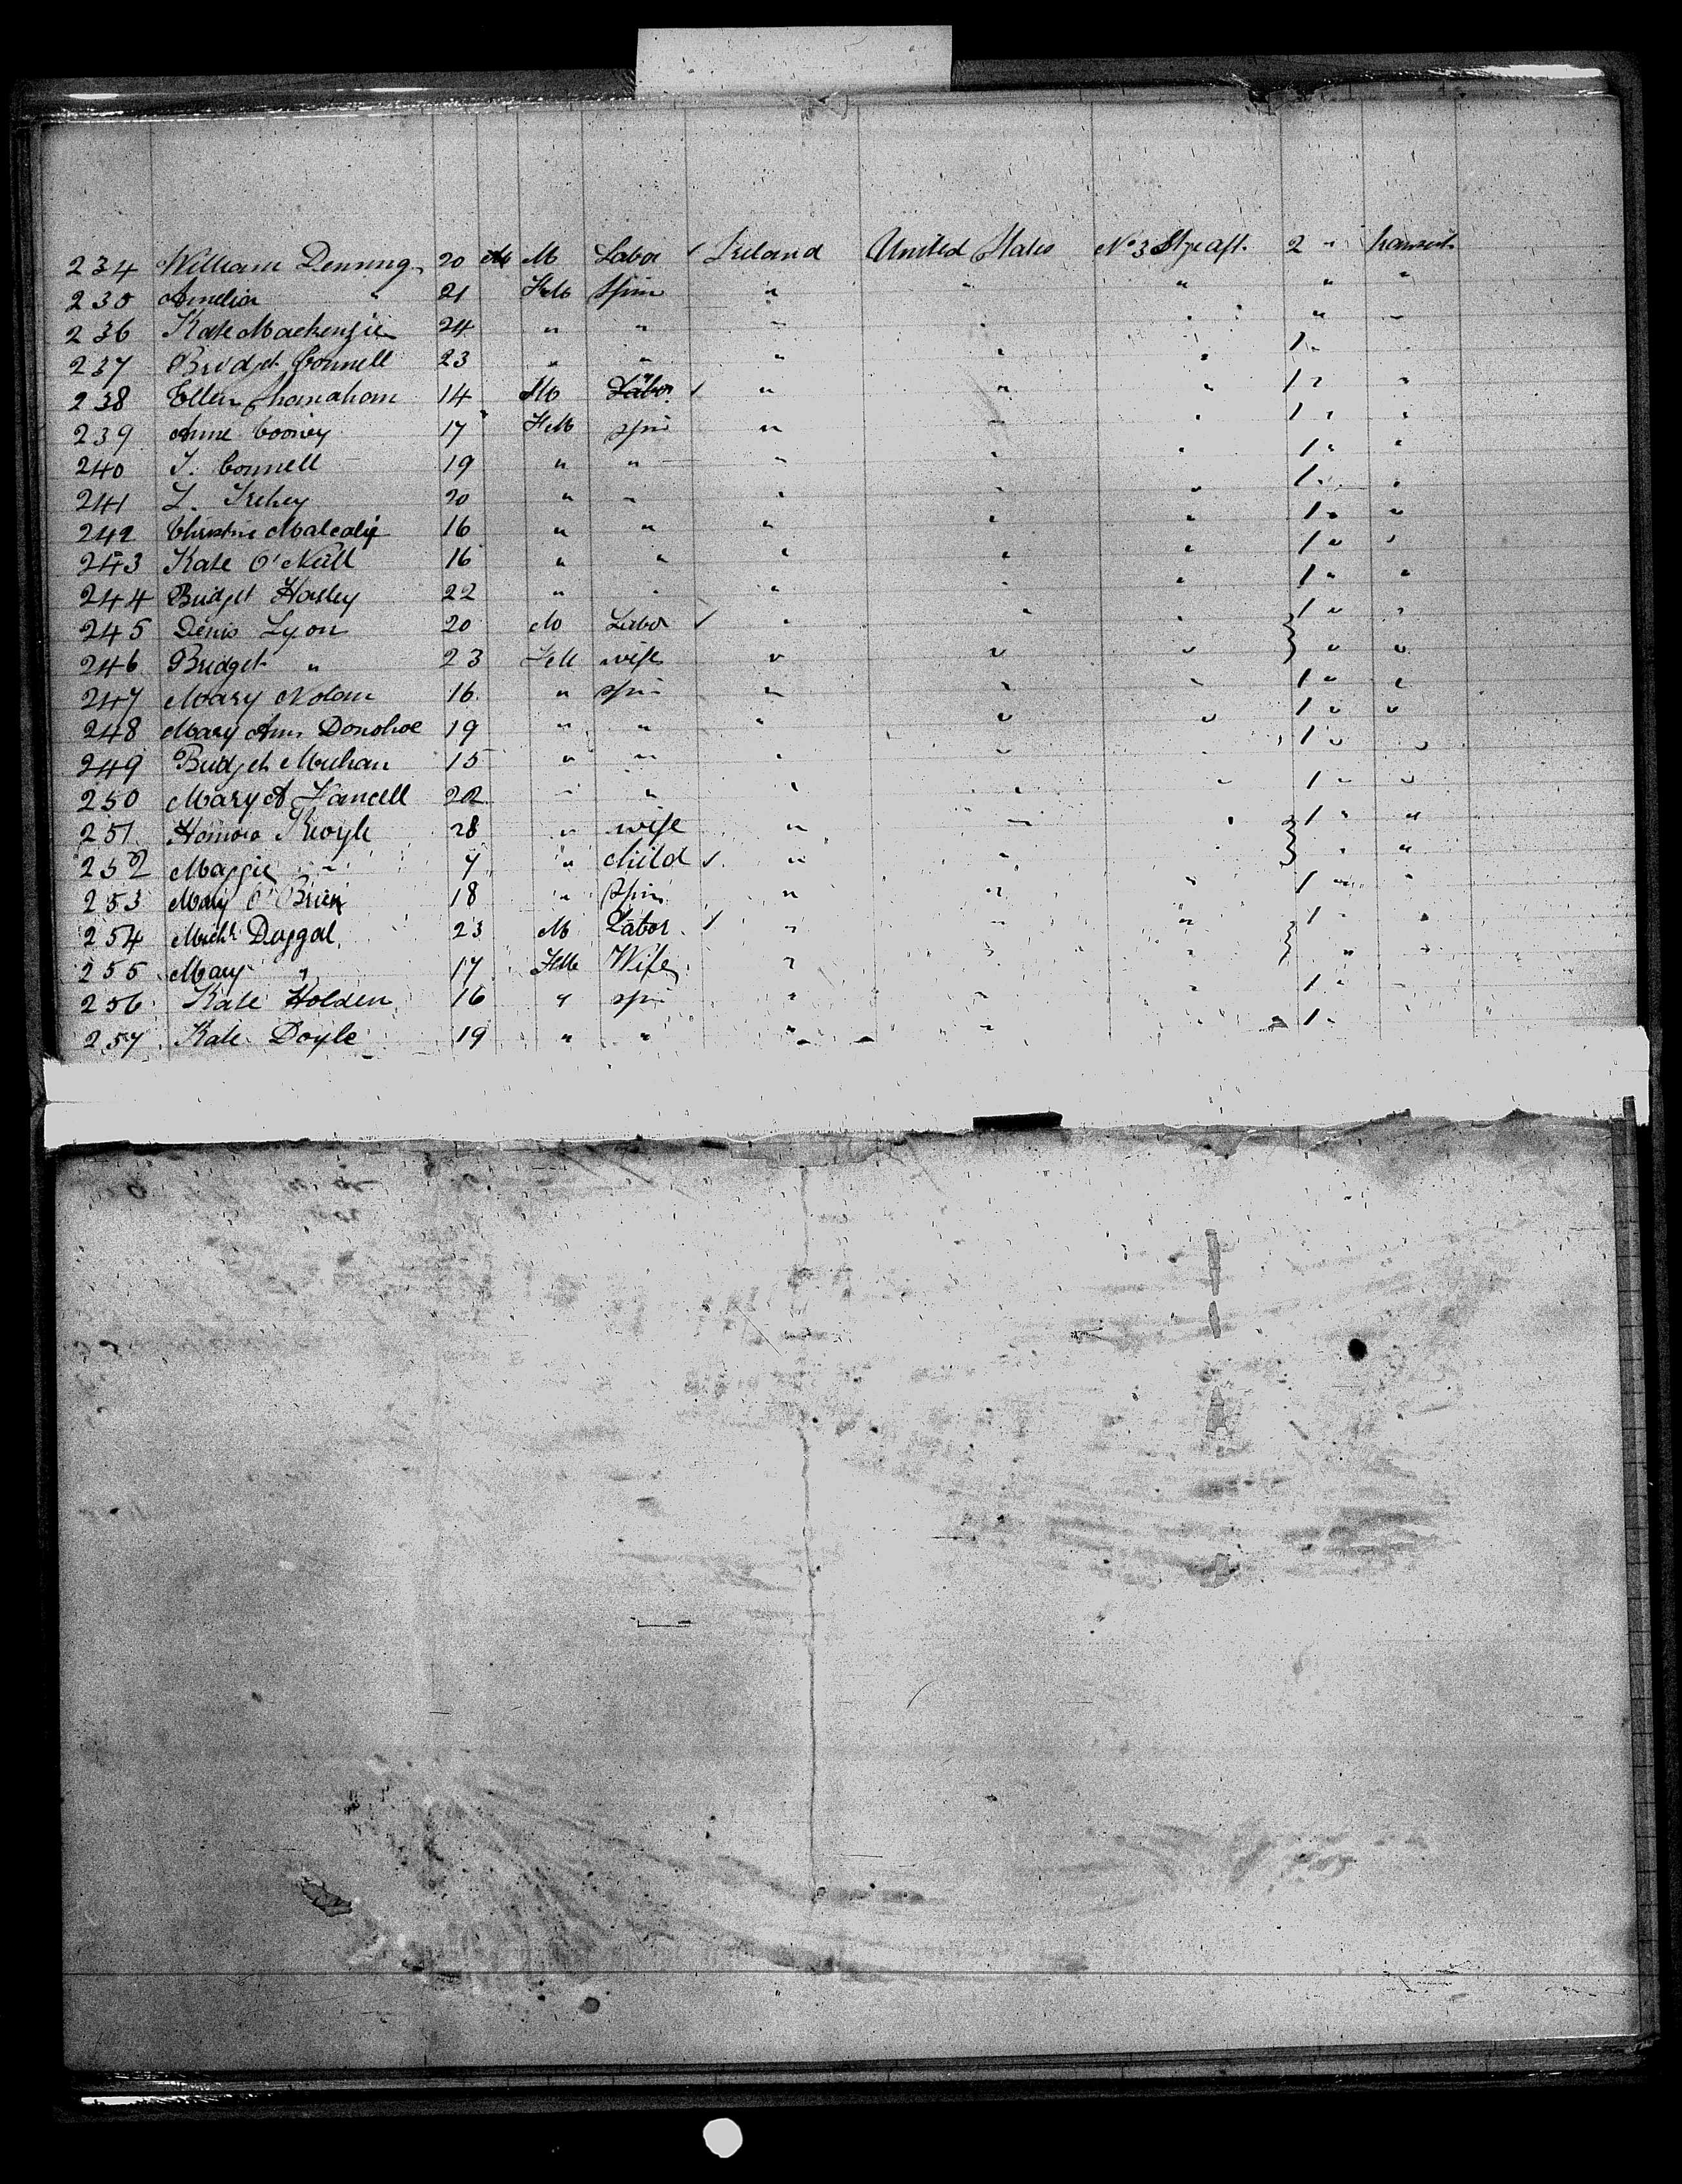 234 William Denning 20 M Labor ✓ Ireland United States No 3 Stge aft. 2 " transit
235 Amelia " 21 FeM Spin " " " " "
236 Kate Mackenzie 24 " " " " " " "
237 Bridget Connell 23 " " " " " 1 "
238 Ellen 14 M Labor ✓ " " " 1 " "
239 Anne Cooney 17 FeM spin " " " 1 " "
240 T. Connell 19 " " " " " 1 " "
241 L. 20 " " " " " 1 " "
242 Christine 16 " " " " " 1 " "
243 Kate O'Neill 16 " " " " " 1 " "
244 Bridget 22 " " " " " 1 " "
245 Denis Lyon 20 M Labor ✓ " " " 1 " "
246 Bridget " 23 FeM wife " " " " "
247 Mary Nolan 16 " spin " " " 1 " "
248 Mary Ann Donohoe 19 " " " " " 1 " "
249 Bridget Meehan 15 " " " " " 1 " "
250 Mary A 22 " " " " " 1 " "
251 Honora 28 " wife " " " 1 " "
252 Maggie " 7 " child ✓ " " " " "
253 Mary O'Brien 18 " Spin " " " 1 " "
254 Michl 23 M Labor ✓ " " " 1 " "
255 Mary " 17 FeM Wife " " " " "
256 Kate Holden 16 " spin " " " 1 " "
257 Kate Doyle 19 " " " " " 1 "